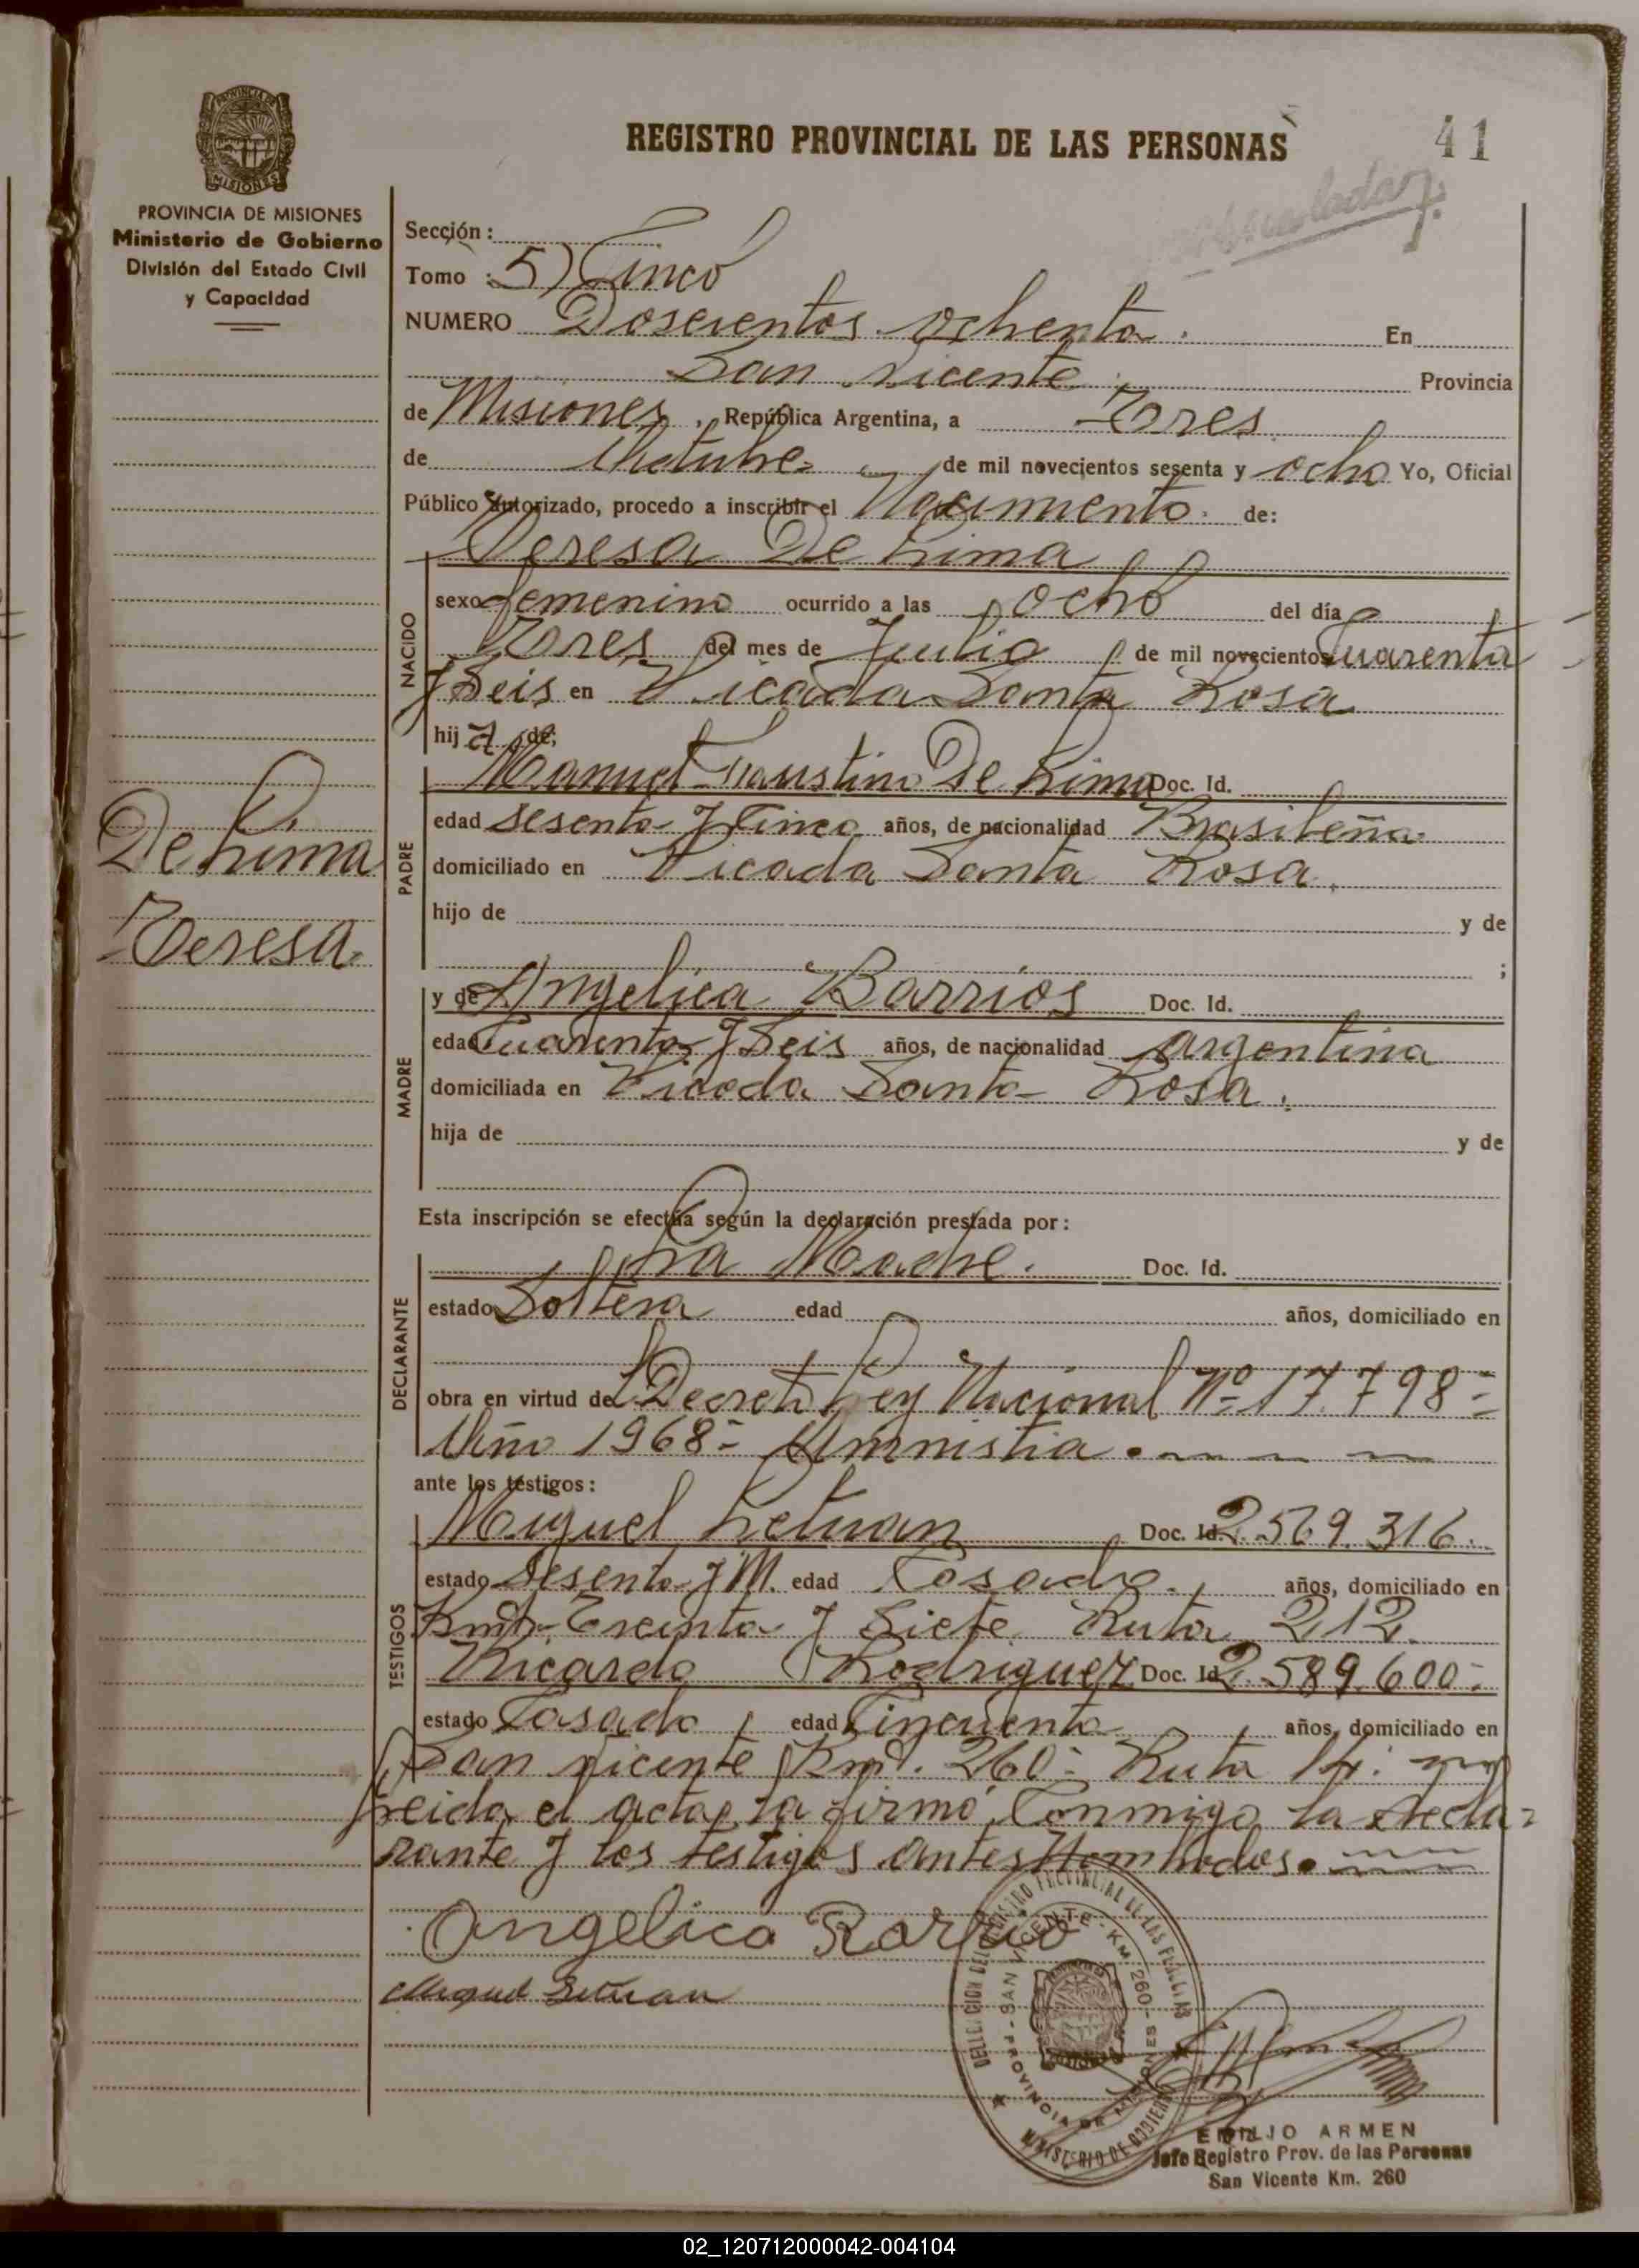 REGISTRO PROVINCIAL DE LAS PERSONAS
41
PROVINCIA DE MISIONES
Ministerio de Gobierno
División del Estado Civil
y Capacidad
Sección:
Tomo : 5) Cinco
NUMERO Doscientos ochenta. En
San Vicente Provincia
de Misiones, República Argentina, a Tres
de Octubre de mil novecientos sesenta y ocho Yo, Oficial
Público Autorizado, procedo a inscribir el Nacimiento de:
Teresa De Lima
NACIDO
sexo femenino ocurrido a las ocho del día
Tres del mes de Julio de mil novecientos Cuarenta
y Seis en Picada Santa Rosa
hija de:
PADRE
Manuel Faustino De Lima Doc. Id.
edad Sesenta y Cinco años, de nacionalidad Brasileña
domiciliado en Picada Santa Rosa,
hijo de y de
;
De Lima
Teresa
MADRE
y de Angelica Barrios Doc. Id.
edad Cuarenta y Seis años, de nacionalidad argentina
domiciliada en Picada Santa Rosa.
hija de y de
Esta inscripción se efectúa según la declaración prestada por:
DECLARANTE
La Madre. Doc. Id.
estado Soltera edad años, domiciliado en
obra en virtud del Decreto Ley Nacional Nº 17.798-
Año 1968- Amnistia.
ante los testigos:
TESTIGOS
Miguel Letuan Doc. Id. 2.569.316.
estado Sesenta y Un. edad Casado, años, domiciliado en
Kmtr. Treinta y Siete Ruta 212.
Ricardo Rodriguez Doc. Id. 2.589.600-
estado Casado, edad Cincuenta, años, domiciliado en
San Vicente Kmt. 260- Ruta 14.
Leida el acta, la firmó Conmigo la decla-
rante y los testigos antes Nombrados.
Angelica Barrio
Miguel Letuan
DELEGACION DEL REGISTRO PROVINCIAL DE LAS PERSONAS
SAN VICENTE - KM 260 - PROVINCIA DE MISIONES
MINISTERIO DE GOBIERNO
EMILIO ARMEN
Jefe Registro Prov. de las Personas
San Vicente Km. 260
02_120712000042-004104